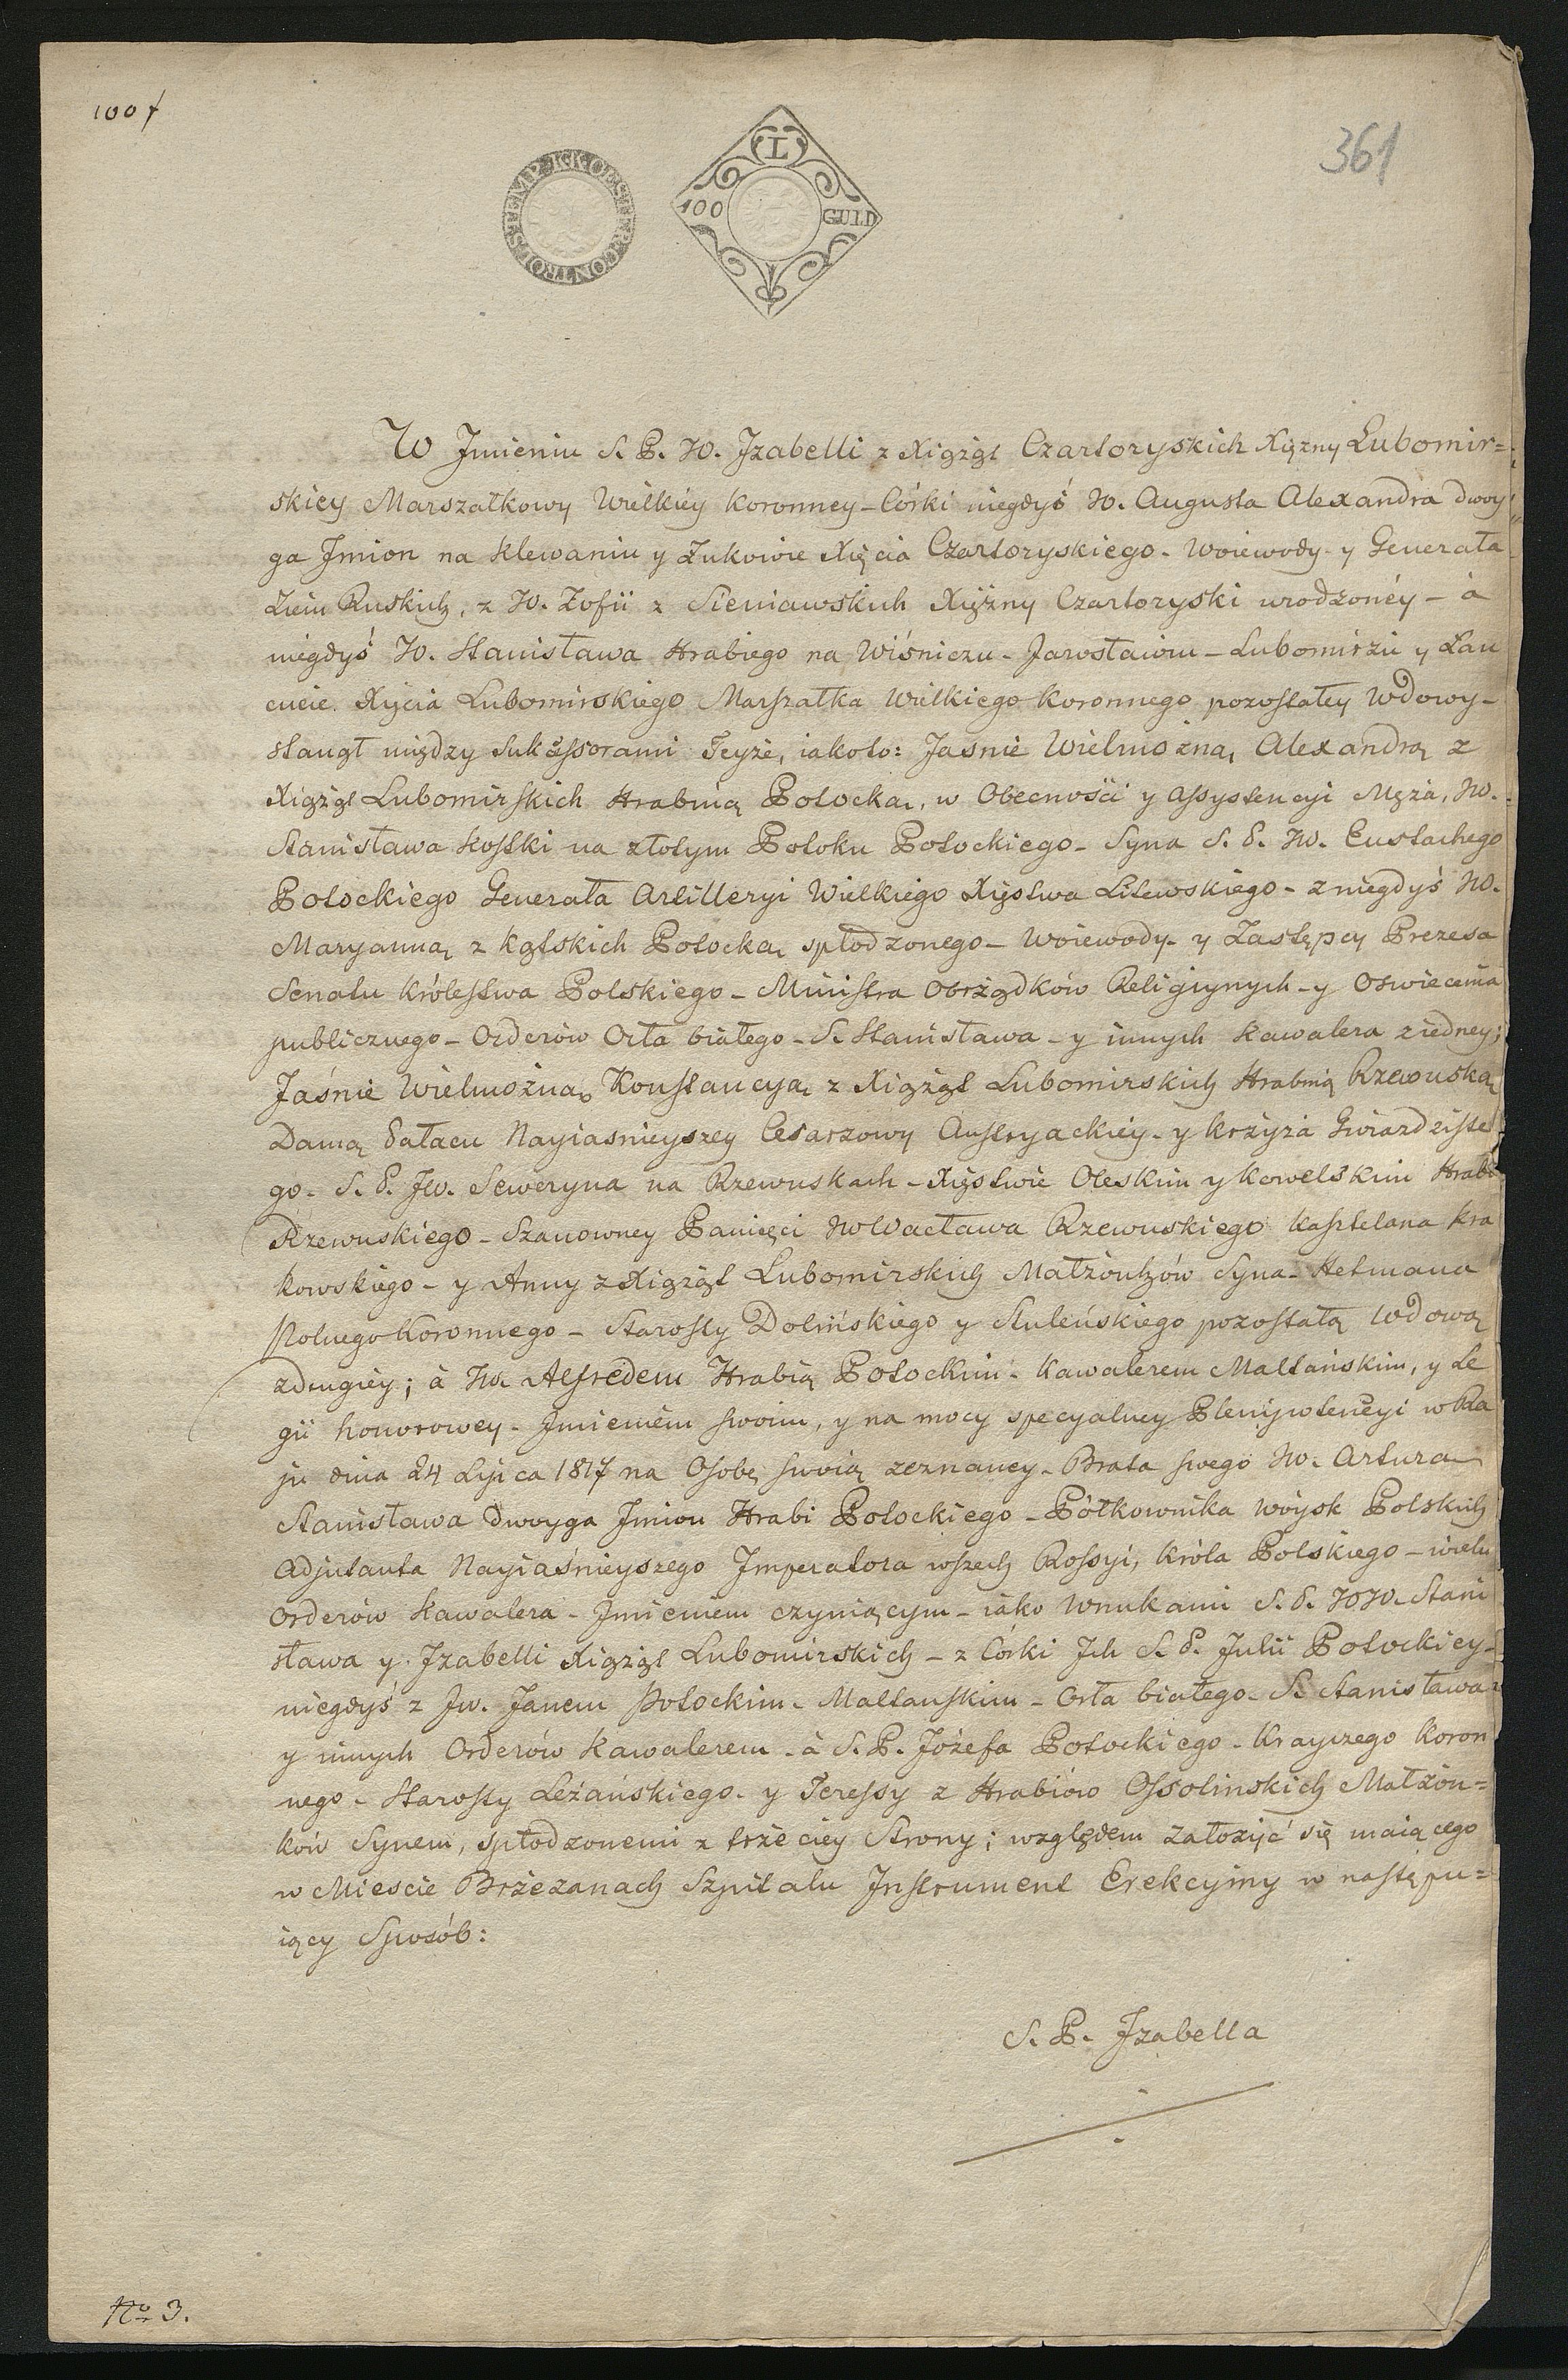 100 f
361
STEMP. KK. OESTER. CONTROL
I
100 GULD
W Jmieniu S. P. JO. Jzabelli z Xiążąt Czartoryskich Xiężny Lubomir=
skiey Marszałkowy Wielkiey Koronney – Córki niegdyś JO. Augusta Alexandra dwoy
ga Jmion na Klewaniu y Żukowie Xięcia Czartoryskiego – Woiewody – y Generała
Ziem Ruskich, z JO. Zofii z Sieniawskich Xiężny Czartoryski urodzonéy – à
niegdyś JO. Stanisława Hrabiego na Wiśniczu – Jarosławiu – Lubomirzu y Łan
cucie Xięcia Lubomirskiego Marszałka Wielkiego Koronnego pozostałey Wdowy –
stanął między Sukcessorami Teyże, iakoto: Jasnie Wielmożną Alexandrą z
Xiążąt Lubomirskich Hrabiną Potocką, w Obecności y Assystencyi Męża, JW.
Stanisława Kostki na złotym Potoku Potockiego – Syna S. P. JW. Eustachego
Potockiego Generała Artilleryi Wielkiego Xięstwa Litewskiego – z niegdyś JW.
Maryanną z Kątskich Potocką spłodzonego – Woiewody – y Zastępcy Prezesa
Senatu Królestwa Polskiego – Ministra Obrządków Religiynych – y Oswiecenia
publicznego – Orderów Orła białego – S. Stanisława – y innych Kawalera z iedney;
Jaśnie Wielmożną Konstancyą z Xiążąt Lubomirskich Hrabiną Rzewuską
Damą Pałacu Nayiasnieyszey Cesarzowy Austryackiey – y Krzyża Gwiazdziste
go – S. P. JW. Seweryna na Rzewuskach – Xięstwie Oleskim y Kowelskim Hrabi
Rzewuskiego – Szanowney Pamięci JW Wacława Rzewuskiego Kasztelana Kra
kowskiego – y Anny z Xiążąt Lubomirskich Małżonków Syna – Hetmana
Polnego Koronnego – Starosty Dolińskiego y Stuleńskiego pozostałą Wdową
z drugiey; à JW. Alfredem Hrabią Potockim – Kawalerem Maltańskim, y Le
gii honorowey – Jmieniem swoim, y na mocy specyalney Plenipotencyi w Ra
ju dnia 24 Lipca 1817 na Osobę swoią zeznaney – Brata swego JW. Artura
Stanisława Dwoyga Jmion Hrabi Potockiego – Półkownika Woysk Polskich
Adjutanta Nayiaśnieyszego Jmperatora wszech Rossyi, Króla Polskiego – wielu
Orderów Kawalera – Jmieniem czyniącym – iako Wnukami S. P. JOJO. Stani
sława y Jzabelli Xiążąt Lubomirskich – z Córki Jch S. P. Julii Potockiey –
niegdyś z JW. Janem Potockim – Maltanskim – Orła białego – S. Stanisława
y innych Orderów Kawalerem – à S. P. Józefa Potockiego – Krayczego Koron
nego – Starosty Leżańskiego – y Teressy z Hrabiów Ossolinskich Małżon=
ków Synem, spłodzonemi z trzeciey Strony; względem założyć się maiącego
w Miescie Brzeżanach Szpitalu Jnstrument Erekcyiny w nastepu=
iący Sposób:
S. P. Jzabella
No 3.